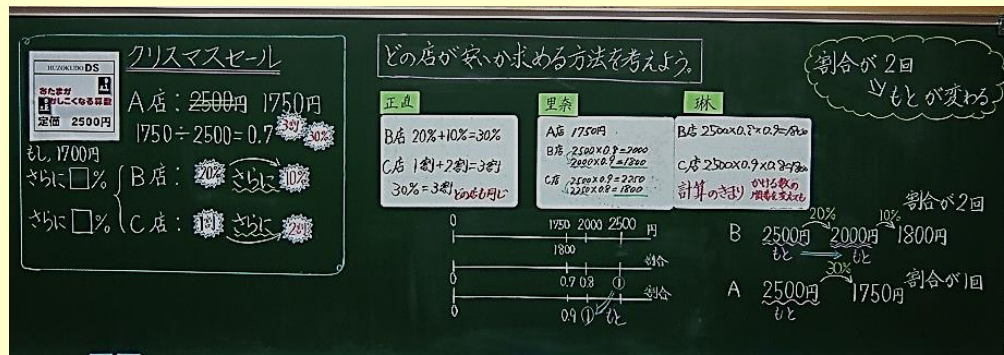 クリスマスセール
HUZOKUDO DS
あたまが
かしこくなる算数
定価 2500円
A店: 2500円 1750円
1750÷2500=0.7 3割 30%
もし,1700円
さらに□% B店: 20% さらに 10%
さらに□% C店: 1割 さらに 2割
どの店が安いか求める方法を考えよう。
正直
B店 20%+10%=30%
C店 1割+2割=3割
30%=3割 どの店も同じ
里奈
A店 1750円
B店 2500×0.8=2000
2000×0.9=1800
C店 2500×0.9=2250
2250×0.8=1800
琳
B店 2500×0.8×0.9=1800
C店 2500×0.9×0.8=1800
計算のきまり かける数の
順番を変えても
0 1750 2000 2500 円
1800
0 0.7 0.8 ① 割合
0 0.9 ① もと 割合
割合が2回
もとが変わる
20% 10% 割合が2回
B 2500円 2000円 1800円
もと もと
30%
A 2500円 1750円 割合が1回
もと